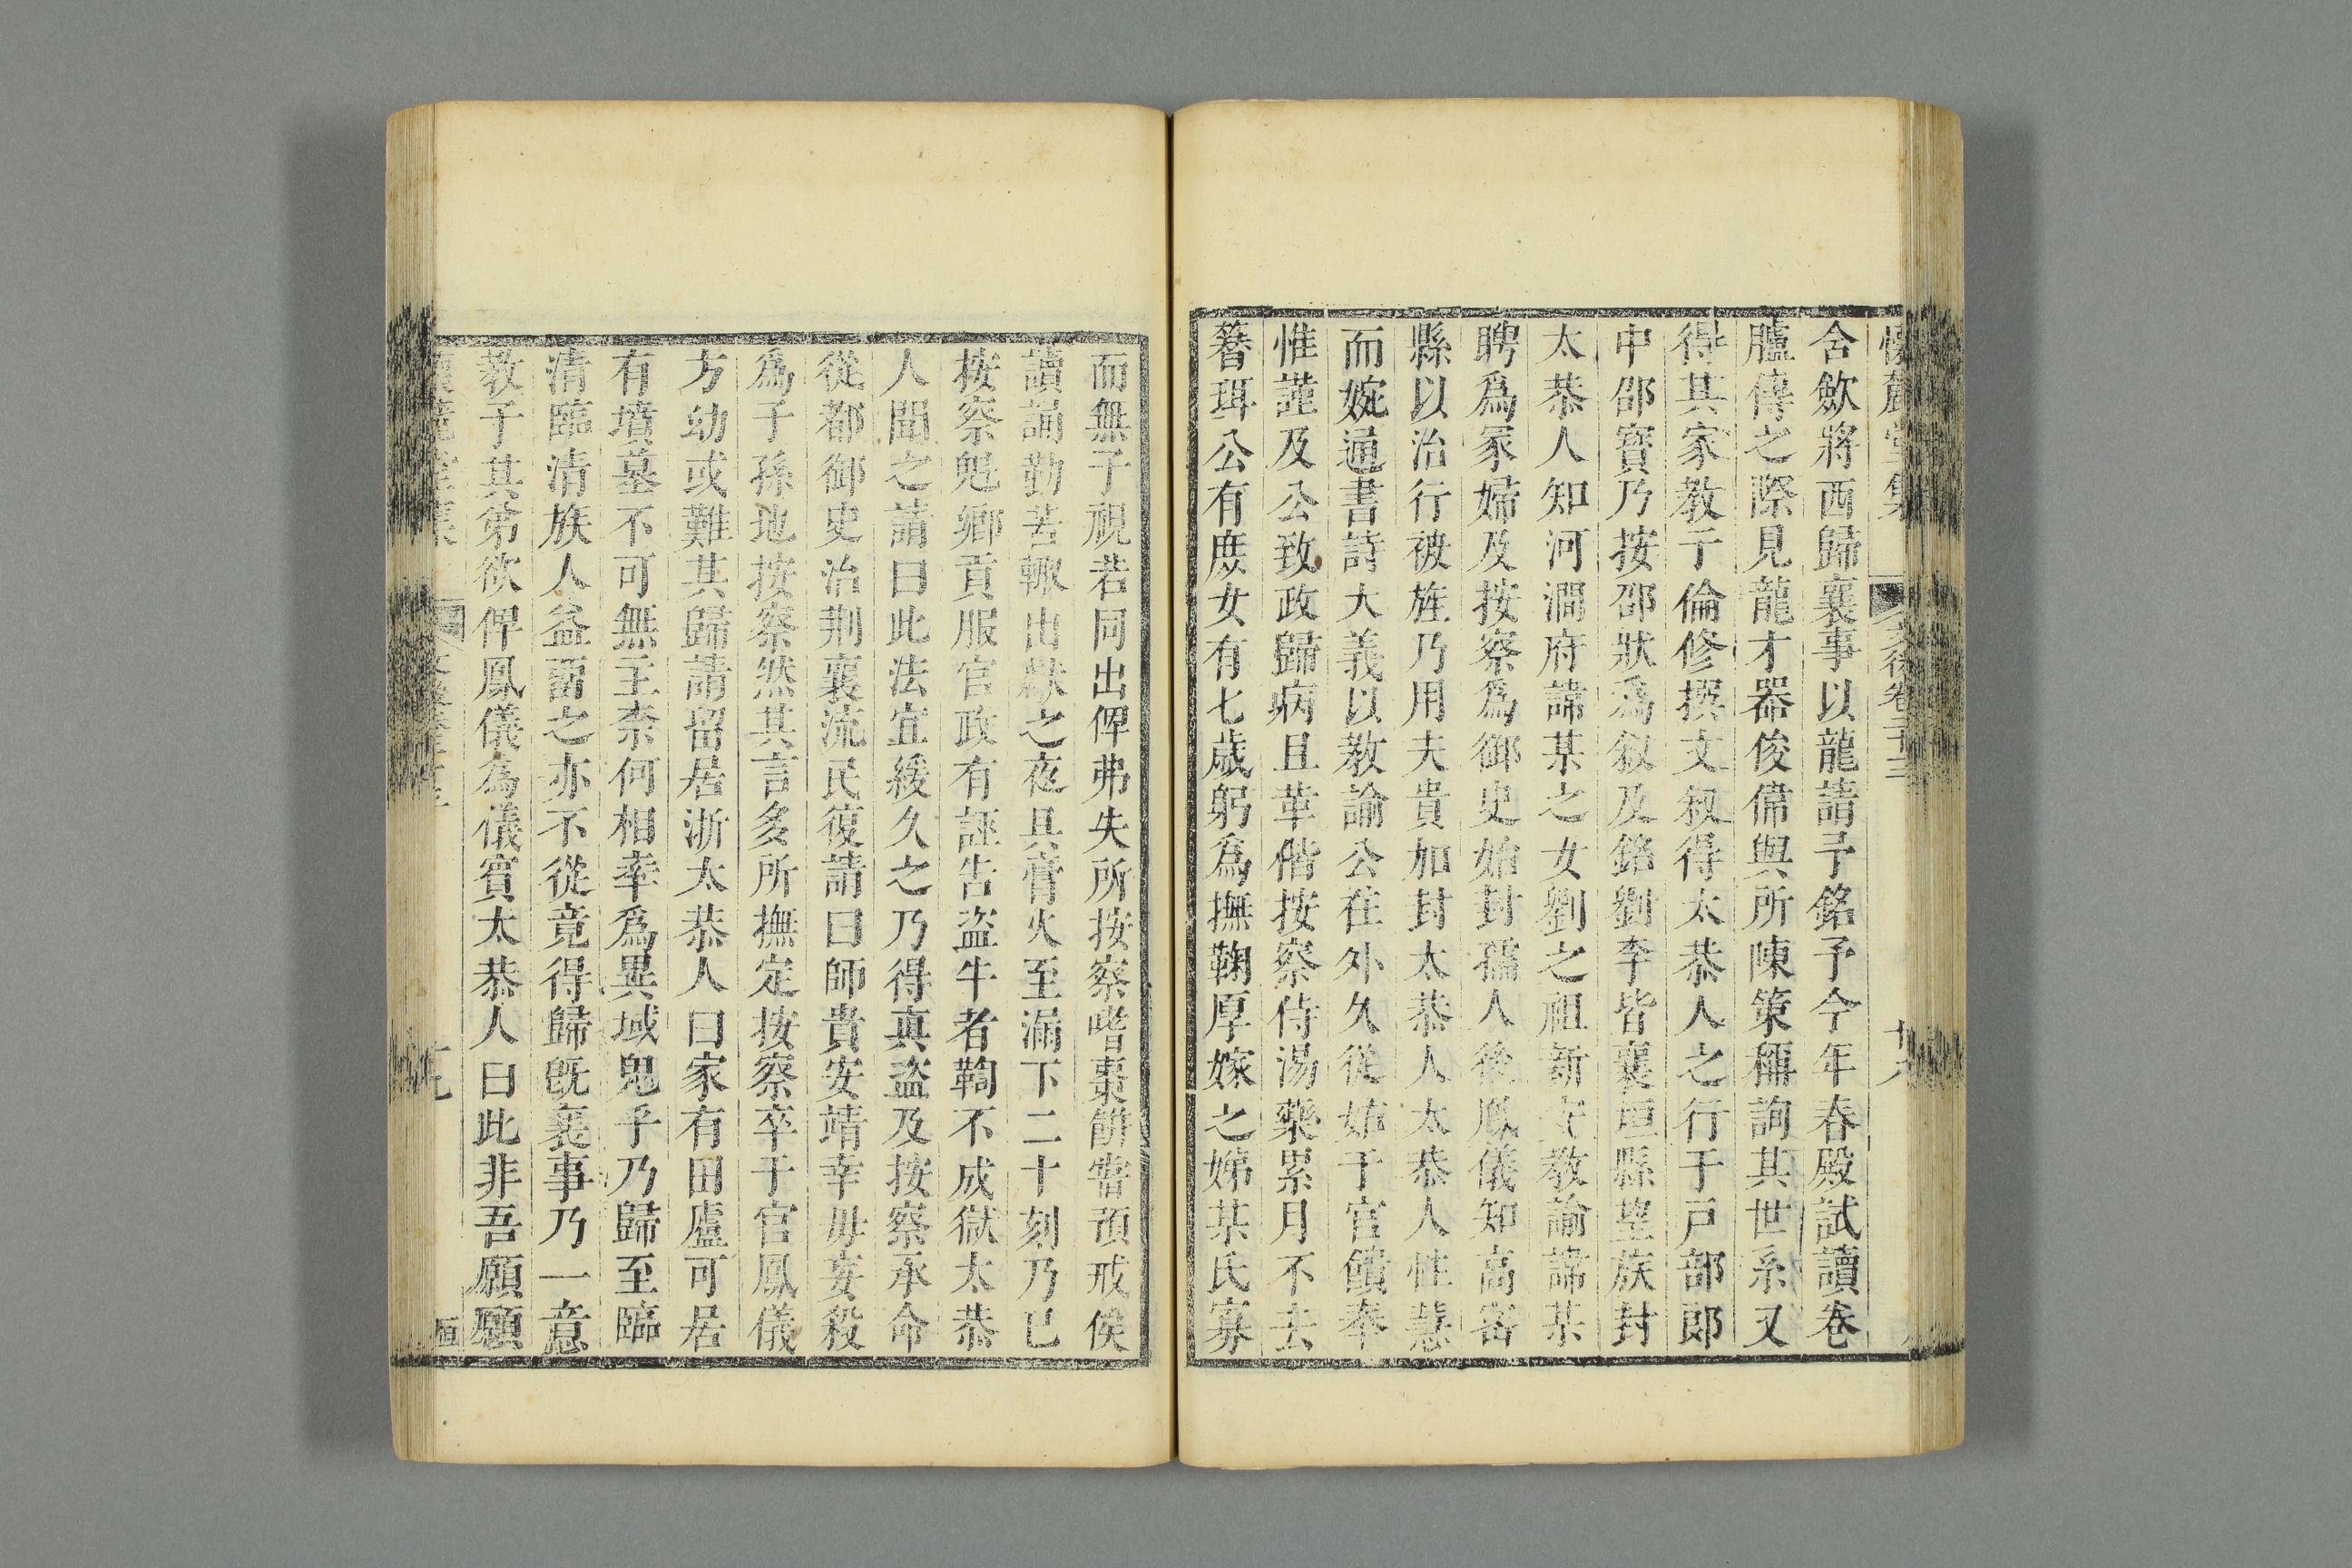 懷麓堂集 文後卷二十三 十八
含歛將西歸襄事以龍請予銘予今年春殿試讀卷
臚傳之際見龍才器俊偉與所陳策稱詢其世系又
得其家教于倫修撰文叙得太恭人之行于戸部郎
中邵寶乃按邵狀爲叙及銘劉李皆襄垣縣望族封
太恭人知河澗府諱某之女劉之祖新安教諭諱某
聘爲冢婦及按察爲御史始封孺人後鳳儀知高密
縣以治行被旌乃用夫貴加封太恭人太恭人性慧
而婉通書詩大義以教諭公在外久從姑于官饋奉
惟謹及公致政歸病且革偕按察侍湯藥累月不去
簮珥公有庶女有七歳躬爲撫鞠厚嫁之娣某氏寡
而無子視若同出俾弗失所按察嗜棗餅嘗預戒侯
讀誦勤苦輙出獻之夜具膏火至漏下二十刻乃已
按察魁鄉貢服官政有誣告盗牛者鞫不成獄太恭
人聞之請曰此法宜緩久之乃得真盗及按察承命
從都御史治荆襄流民復請曰師貴安靖幸毋妄殺
爲子孫地按察然其言多所撫定按察卒于官鳳儀
方幼或難其歸請留居浙太恭人曰家有田廬可居
有墳墓不可無主柰何相率爲異域鬼乎乃歸至臨
清臨清族人益畱之亦不從竟得歸既襄事乃一意
教子其弟欲俾鳳儀為儀賓太恭人曰此非吾願願